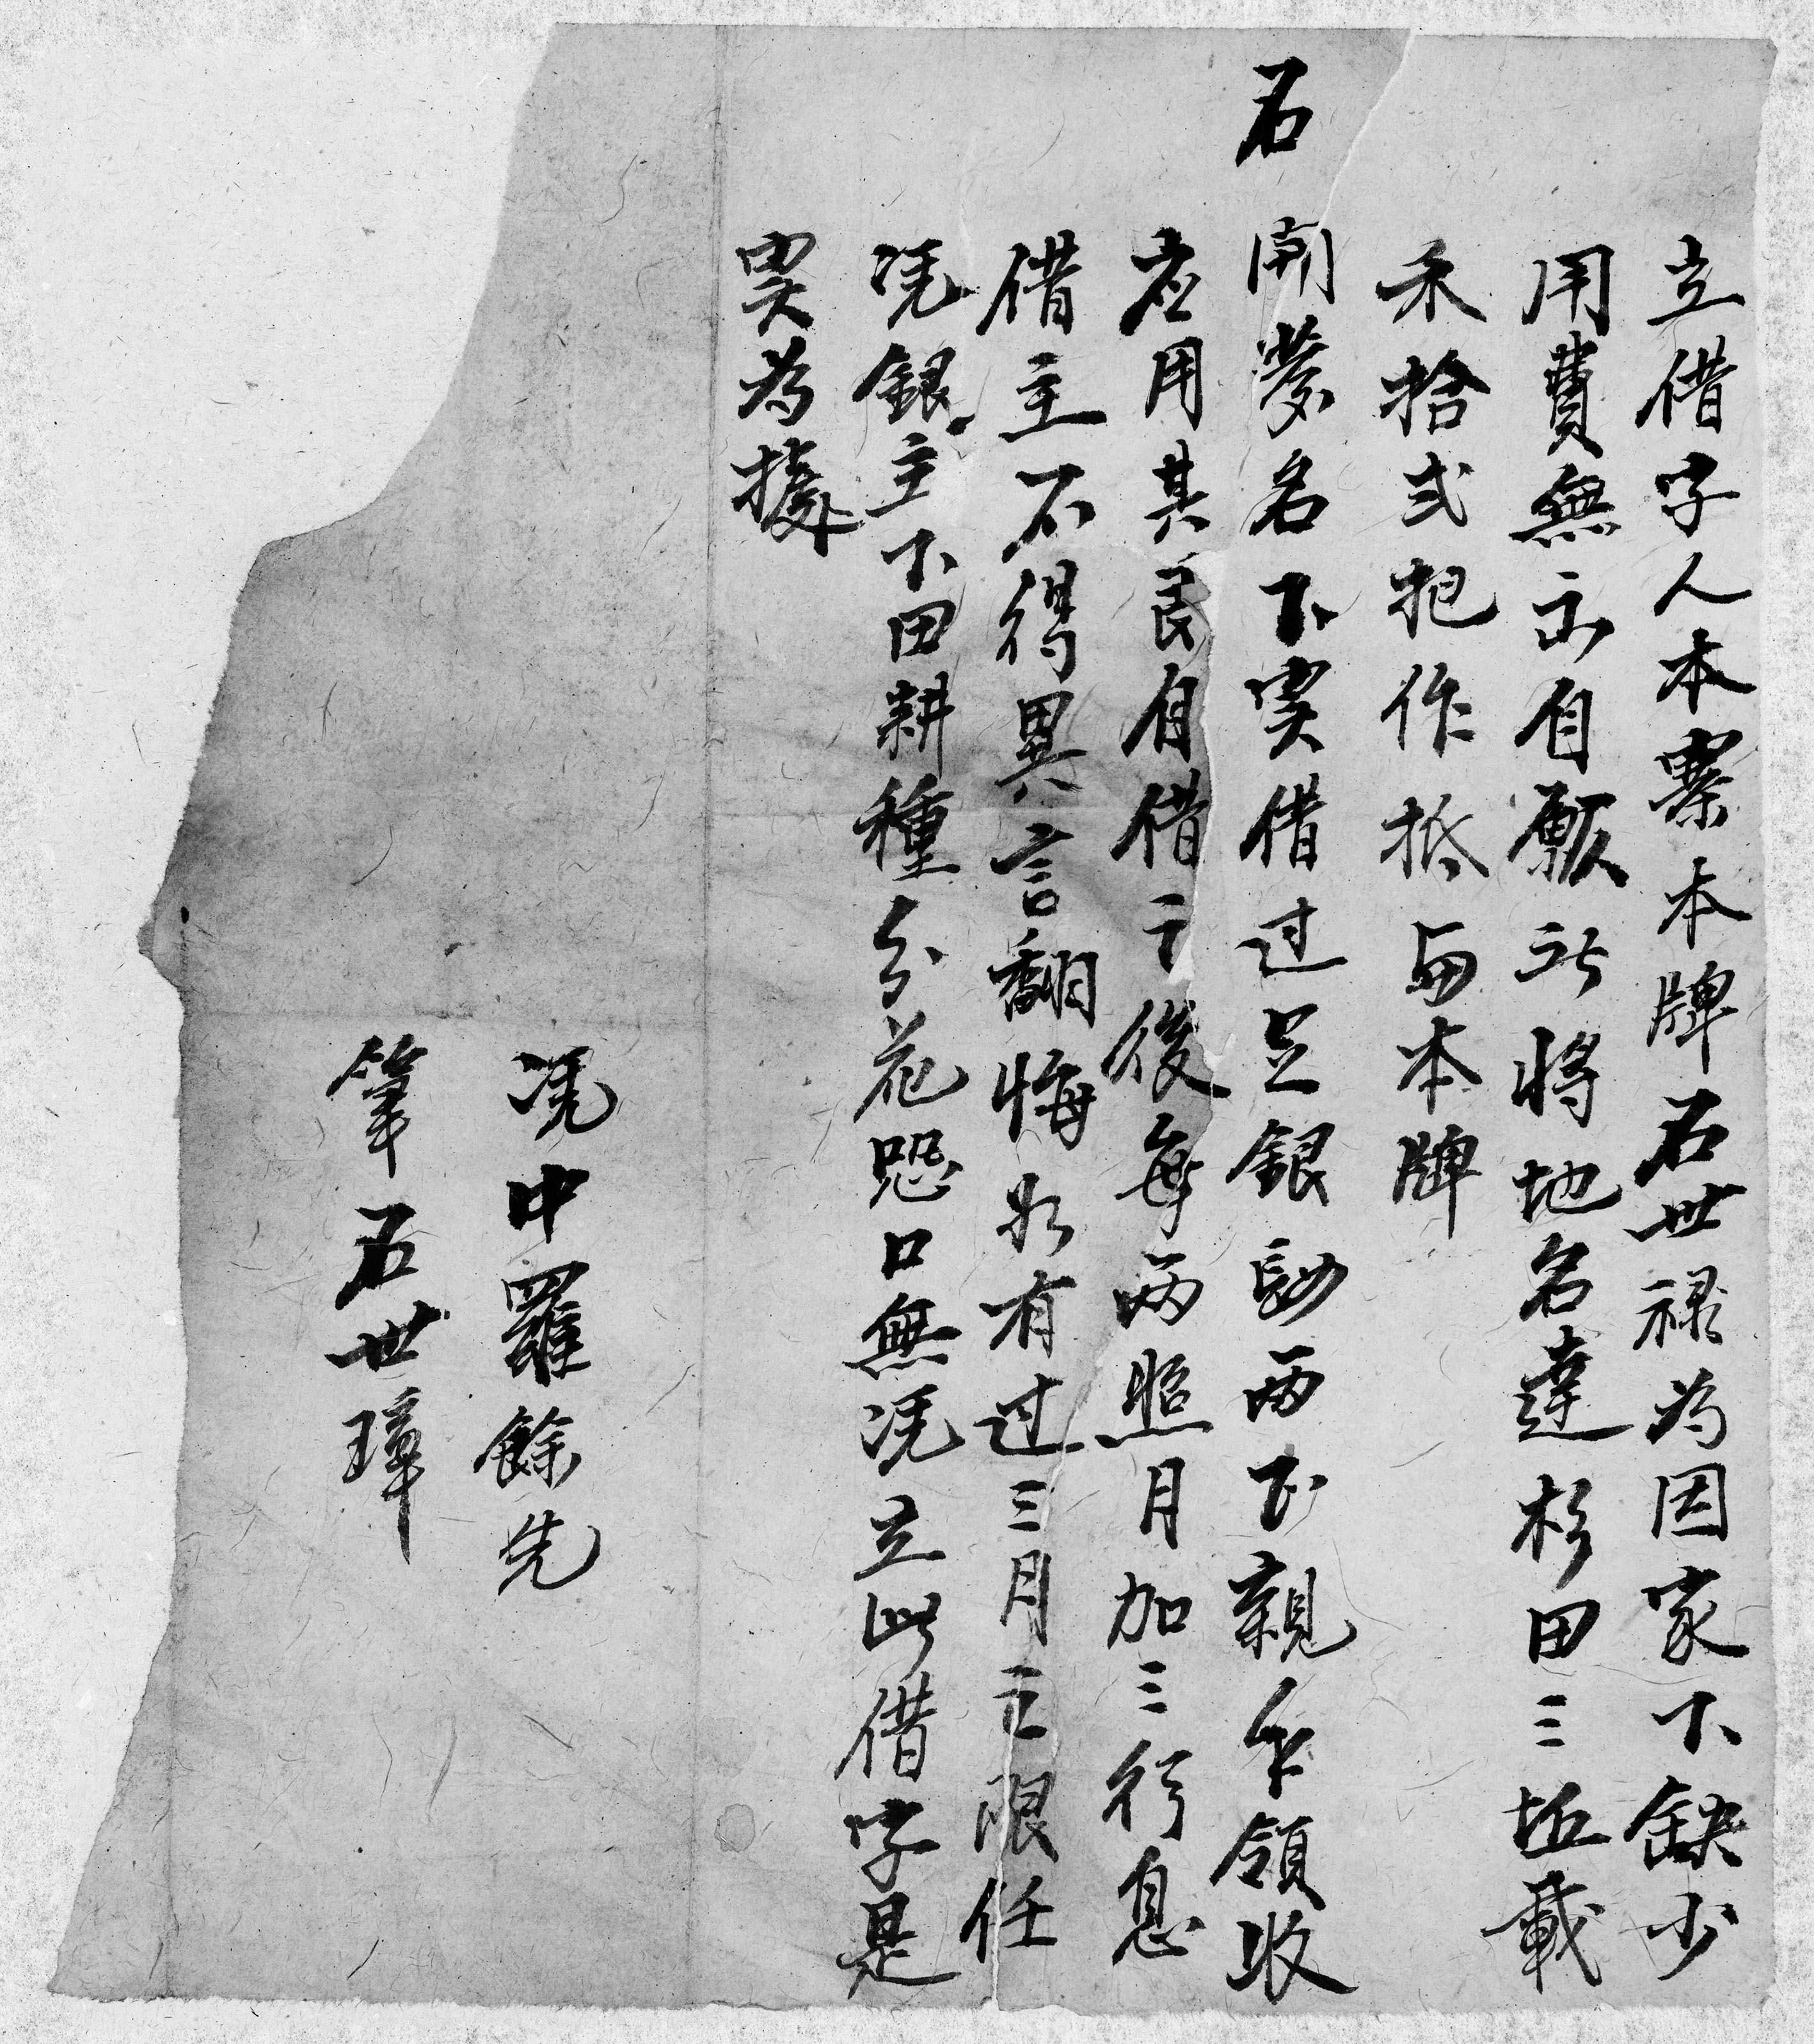 立借字人本寨本牌石世禄为因家下缺少
用費無出自願将地名達杉田三坵載
禾拾弍把作抵与本牌
石開夢名下实借过足銀 両下親手領收
应用其艮自借之後每両照月加三行息
借主不得異言翻悔若有过三月之限任
凴銀主下田耕種分花恐口無凴立此借字是
实为據
凴中羅餘先
筆石世璋